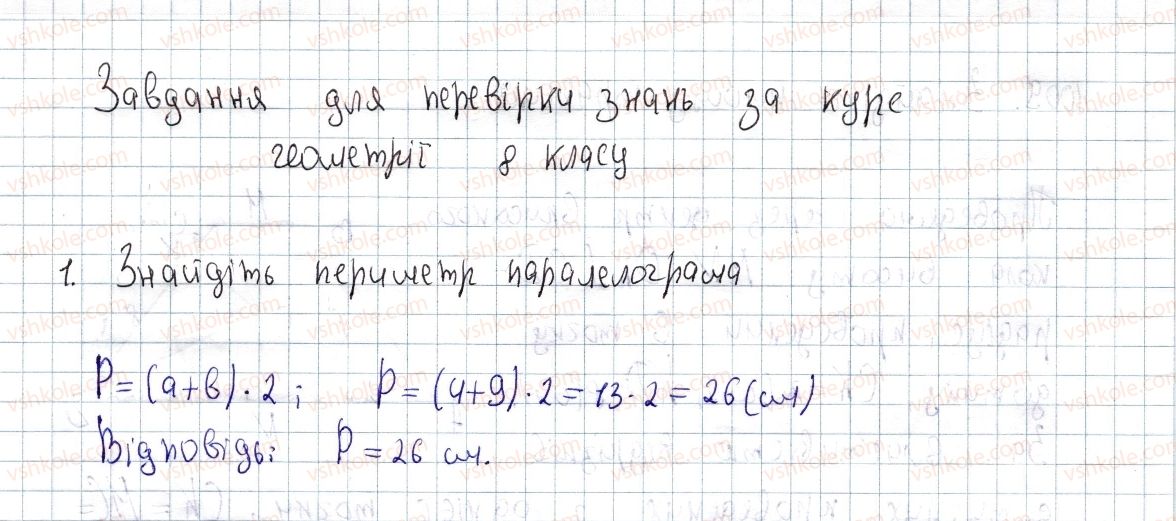 Завдання для перевірки знань за курс
геометрії 8 класу
1. Знайдіть периметр паралелограма
P = (a+b)·2; P = (4+9)·2 = 13·2 = 26 (см)
Відповідь: P = 26 см.